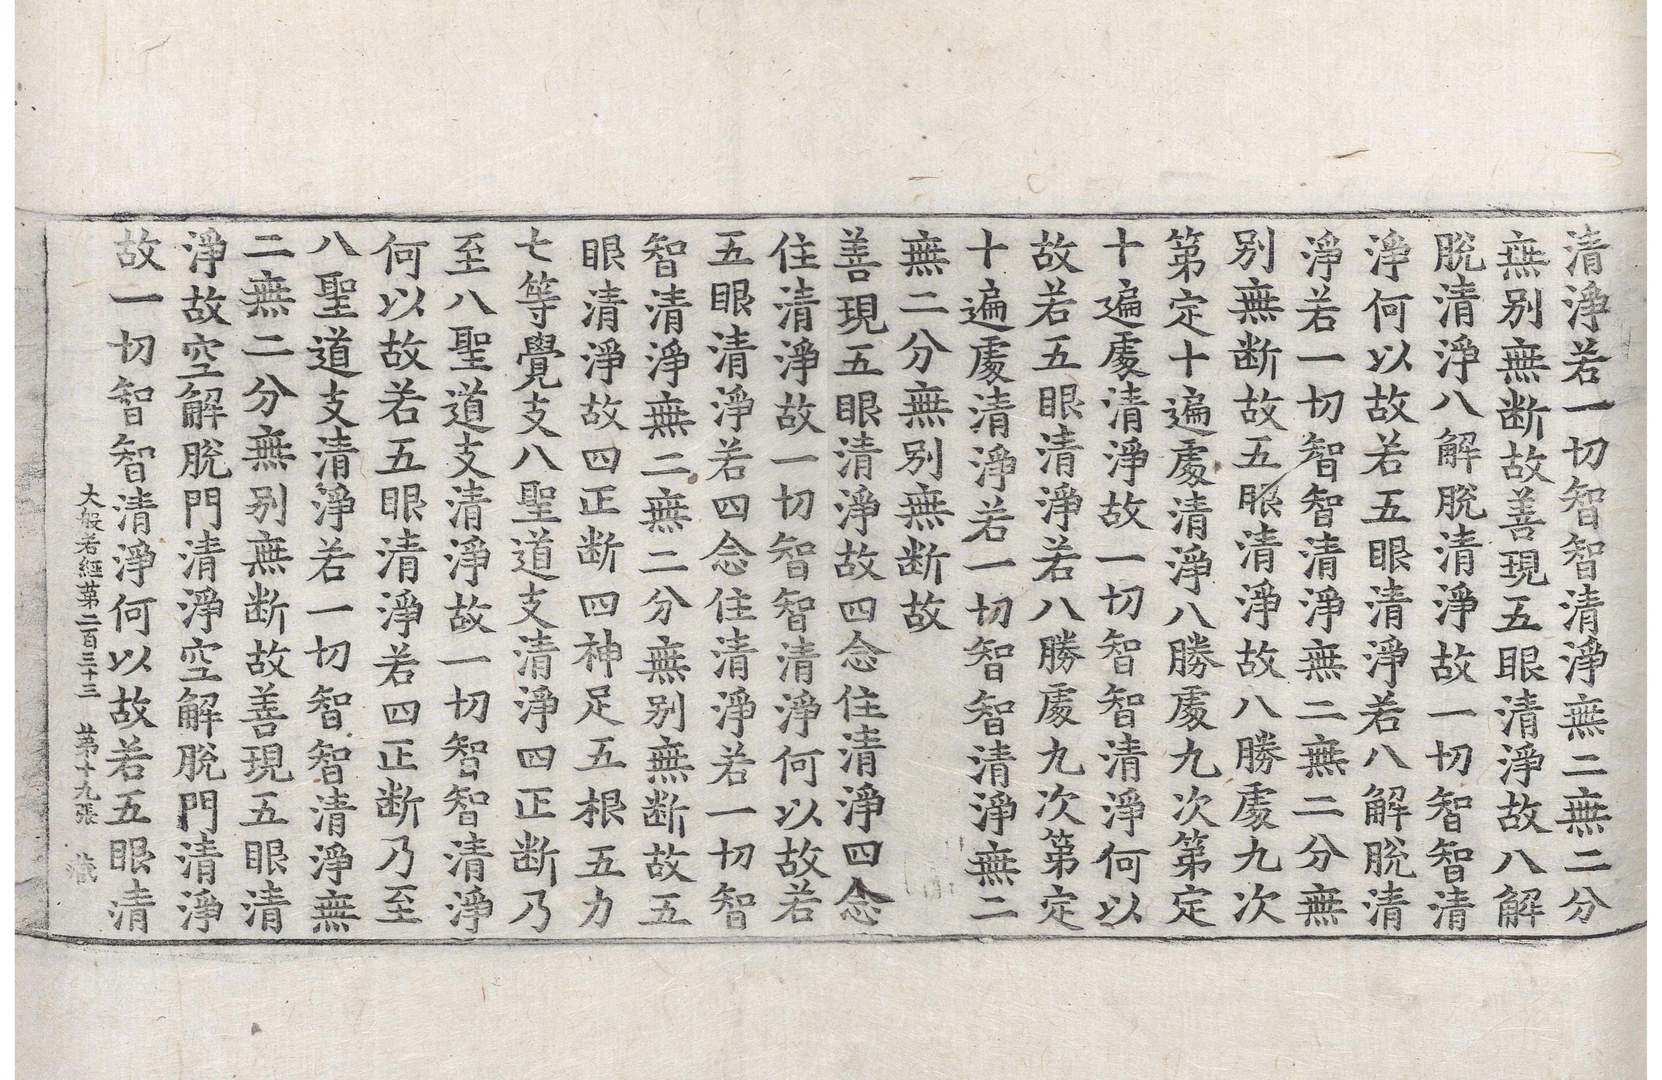 清淨若一切智智清淨無二無二分
無別無断故善現五眼清淨故八解
脫清淨八解脫清淨故一切智智清
淨何以故若五眼清淨若八解脫清
淨若一切智智清淨無二無二分無
別無断故五眼清淨故八勝處九次
第定十遍處清淨八勝處九次第定
十遍處清淨故一切智智清淨何以
故若五眼清淨若八勝處九次第定
十遍處清淨若一切智智清淨無二
無二分無別無断故
善現五眼清淨故四念住清淨四念
住清淨故一切智智清淨何以故若
五眼清淨若四念住清淨若一切智
智清淨無二無二分無別無断故五
眼清淨故四正断四神足五根五力
七等覺支八聖道支清淨四正断乃
至八聖道支清淨故一切智智清淨
何以故若五眼清淨若四正断乃至
八聖道支清淨若一切智智清淨無
二無二分無別無断故善現五眼清
淨故空解脫門清淨空解脫門清淨
故一切智智清淨何以故若五眼清
大般若經苐二百三十三 苐十九張